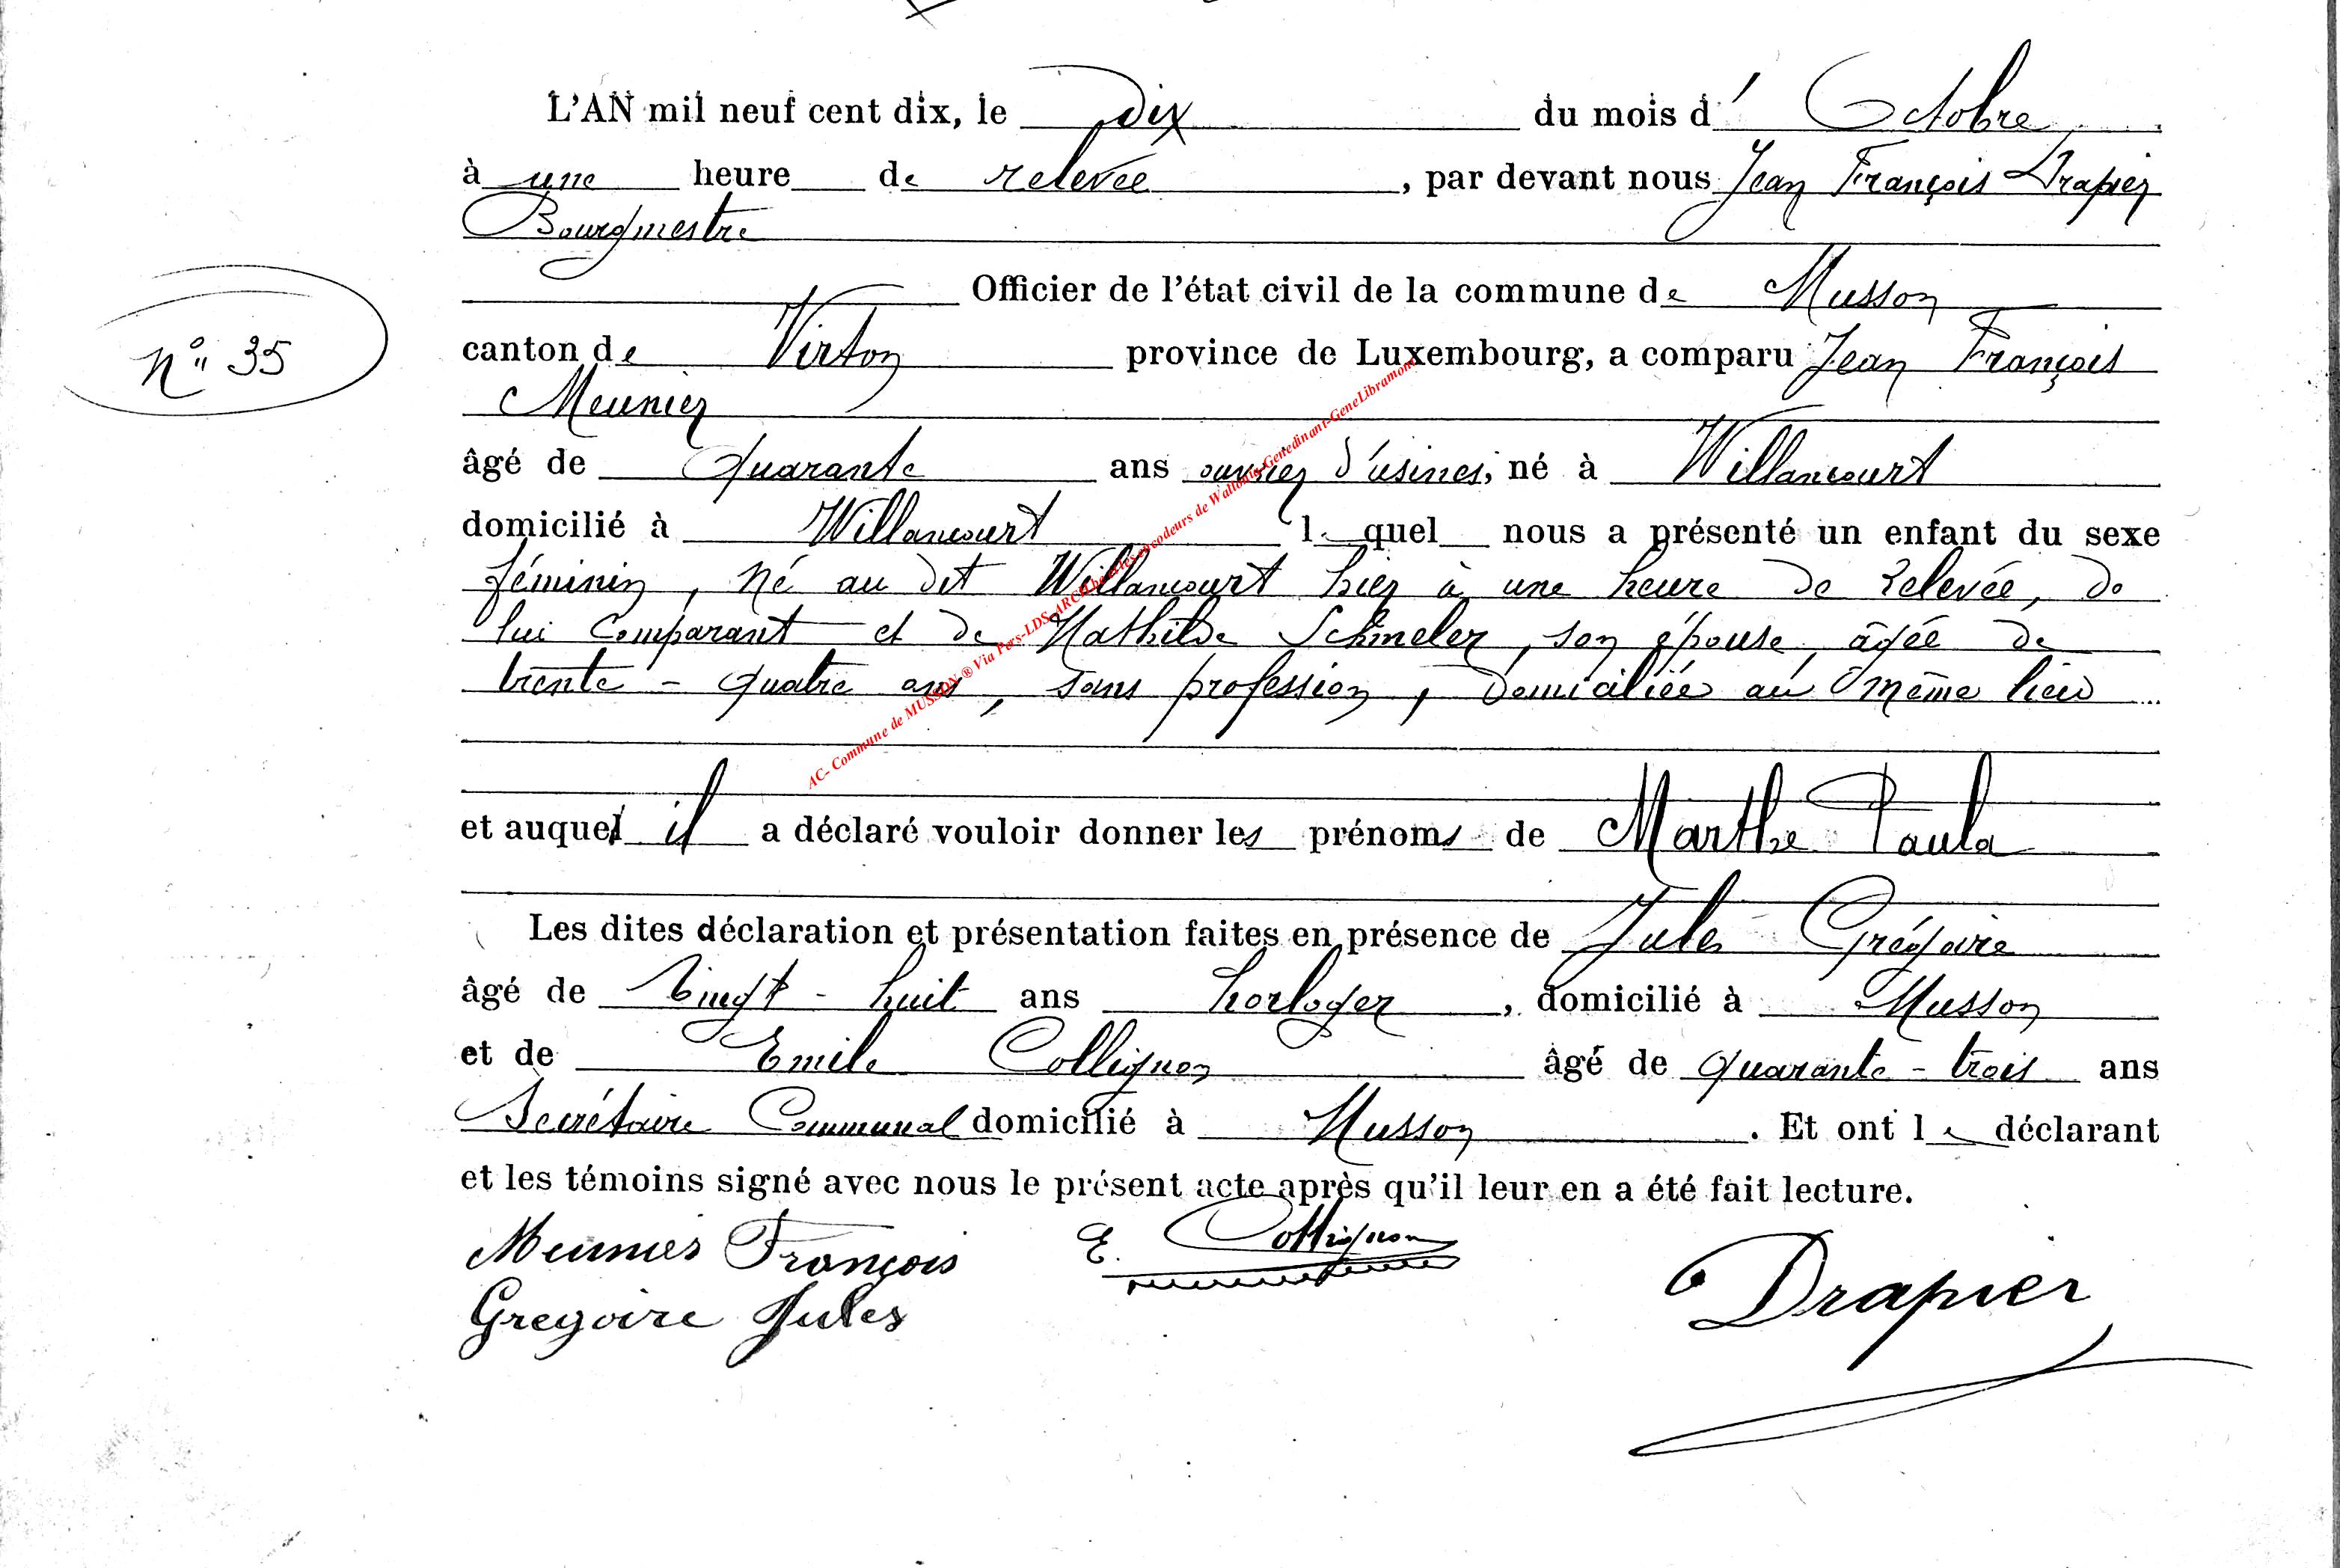 L'AN mil neuf cent dix, le Dix du mois d' Octobre
à une heure de relevée, par devant nous Jean François Drapier
Bourgmestre
Officier de l'état civil de la commune de Musson
N° 35
canton de Virton province de Luxembourg, a comparu Jean François
Meunier
âgé de Quarante ans ouvrier d'usines, né à Willancourt
domicilié à Willancourt lequel nous a présenté un enfant du sexe
féminin, né au dit Willancourt hier à une heure de relevée, de
lui Comparant et de Mathilde Schmeler, son épouse, âgée de
trente-quatre ans, sans profession, domiciliée au même lieu
et auquel il a déclaré vouloir donner les prénoms de Marthe Paula
Les dites déclaration et présentation faites en présence de Jules Grégoire
âgé de Vingt-huit ans horloger, domicilié à Musson
et de Emile Collignon âgé de quarante-trois ans
Secrétaire Communal domicilié à Musson. Et ont le déclarant
et les témoins signé avec nous le présent acte après qu'il leur en a été fait lecture.
Meunier François E. Collignon
Gregoire Jules Drapier
AC- Commune de MUSSON ® Via Pers-LDS-ARCH.be et les encodeurs de Wallonie-Genedinant-GeneLibramont